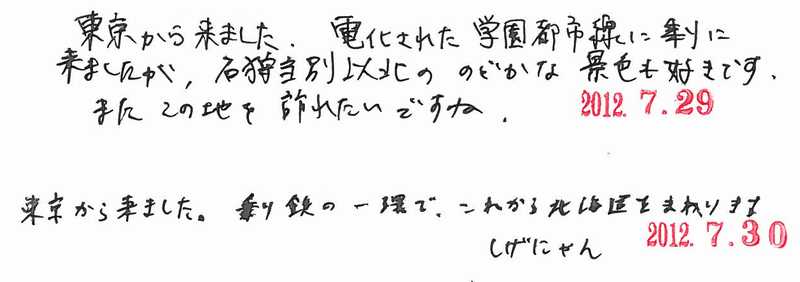 東京から来ました. 電化された学園都市線に乗りに
来ましたが, 石狩当別以北ののどかな景色も好きです.
またこの地を訪れたいですね. 2012. 7. 29
東京から来ました。乗り鉄の一環で、これから北海道をまわります
しげにゃん 2012. 7. 30